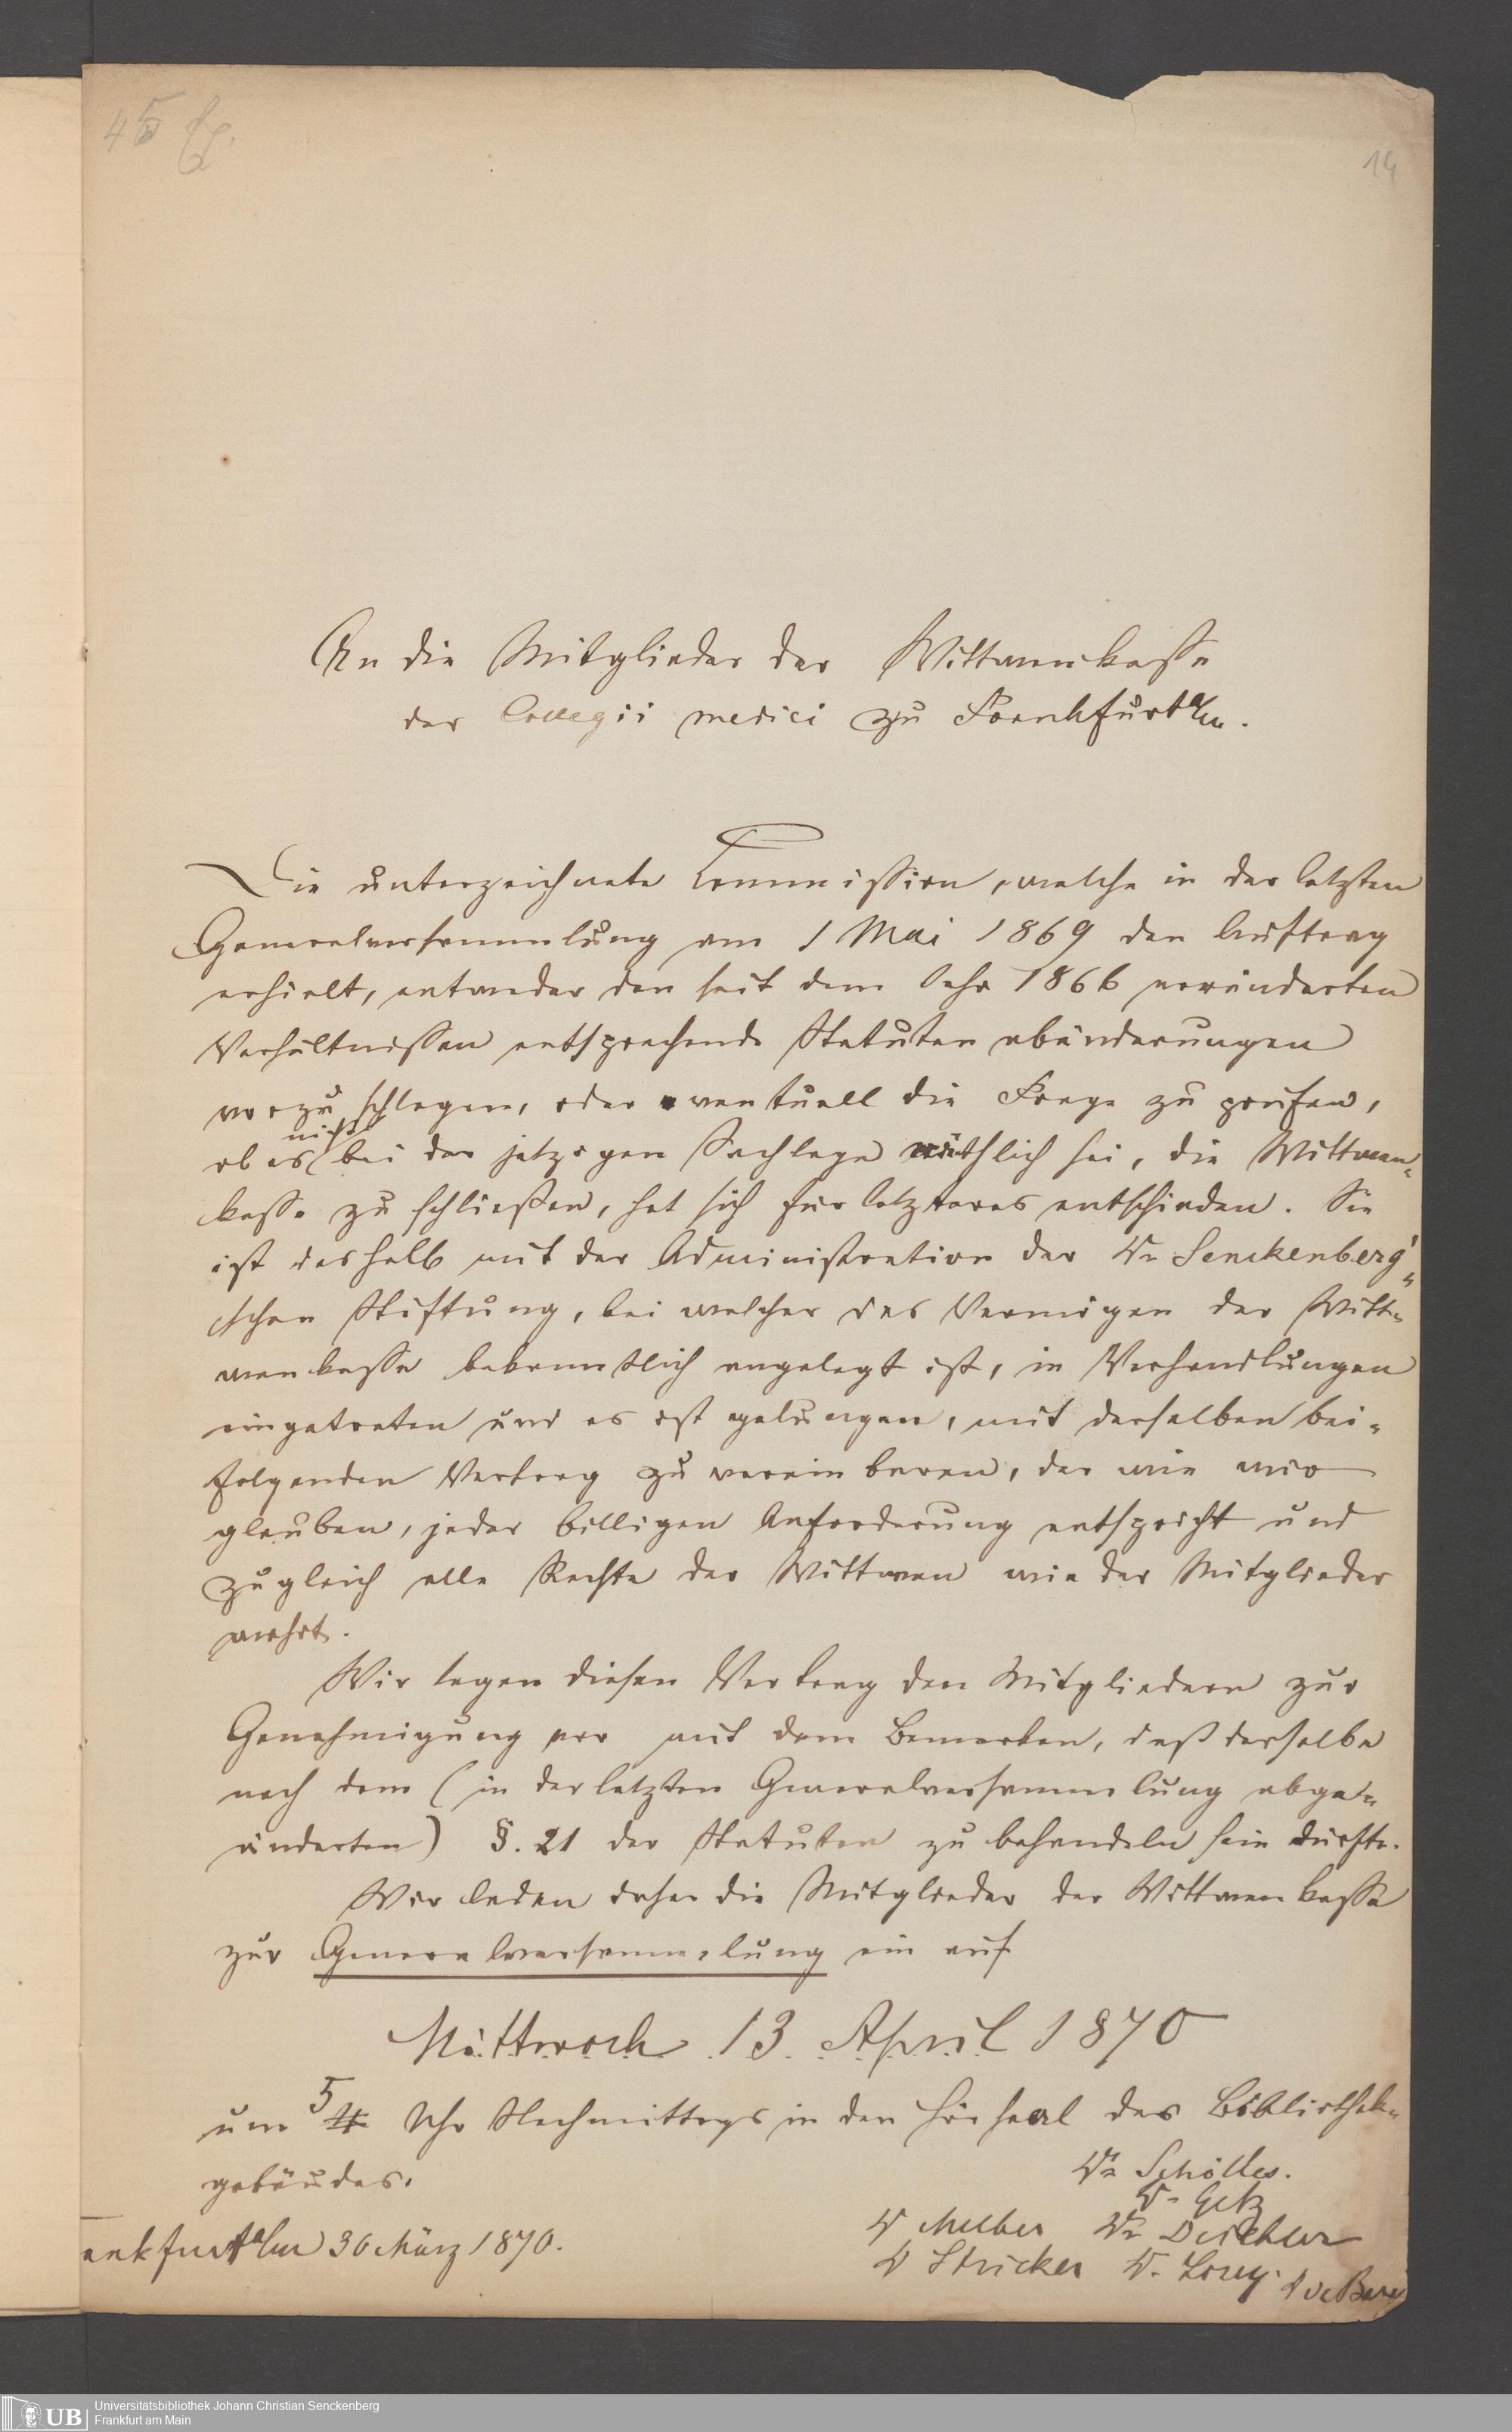 45
14
An die Mitglieder der Wittwenkasse
des Collegii medici zu Frankfurt a/m.
Die unterzeichnete Commission, welche in der letzten
Generalversammlung am 1 Mai 1869 den Auftrag
erhielt, entweder den seit dem Jahr 1866 veränderten
Verhältnissen entsprechende Statuten abänderungen
vorzuschlagen, oder eventuell die Frage zu prüfen,
nicht
ob es bei der jetzigen Sachlage räthlich sei, die Wittwen-
kasse zu schließen, hat sich für letzteres entschieden. Sie
ist deshalb mit der Administration der Dr Senckenberg'-
schen Stiftung, bei welcher das Vermögen der Witt-
wenkasse bekanntlich angelegt ist, in Verhandlungen
eingetreten und es ist gelungen, mit derselben bei-
folgenden Vertrag zu vereinbaren, der wie wir
glauben, jeder billigen Anforderung entspricht und
zugleich alle Rechte der Wittwen wie der Mitglieder
wahrt.
Wir legen diesen Vertrag den Mitgliedern zur
Genehmigung vor mit dem Bemerken, daß derselbe
nach dem (in der letzten Generalversammlung abge-
änderten) §. 21 der Statuten zu behandeln sein dürfte.
Wir laden daher die Mitglieder der Wittwenkasse
zur Generalversammlung ein auf
Mittwoch 13. April 1870
um 5 Uhr Nachmittags in den Hörsaal des Bibliothek-
gebäudes.
Dr Schölles.
Dr Getz
D Melber
D Stricker Dr. Lorey. d deBary
ankfurt a/m 30 März 1870.
Universitätsbibliothek Johann Christian Senckenberg
UB Frankfurt am Main